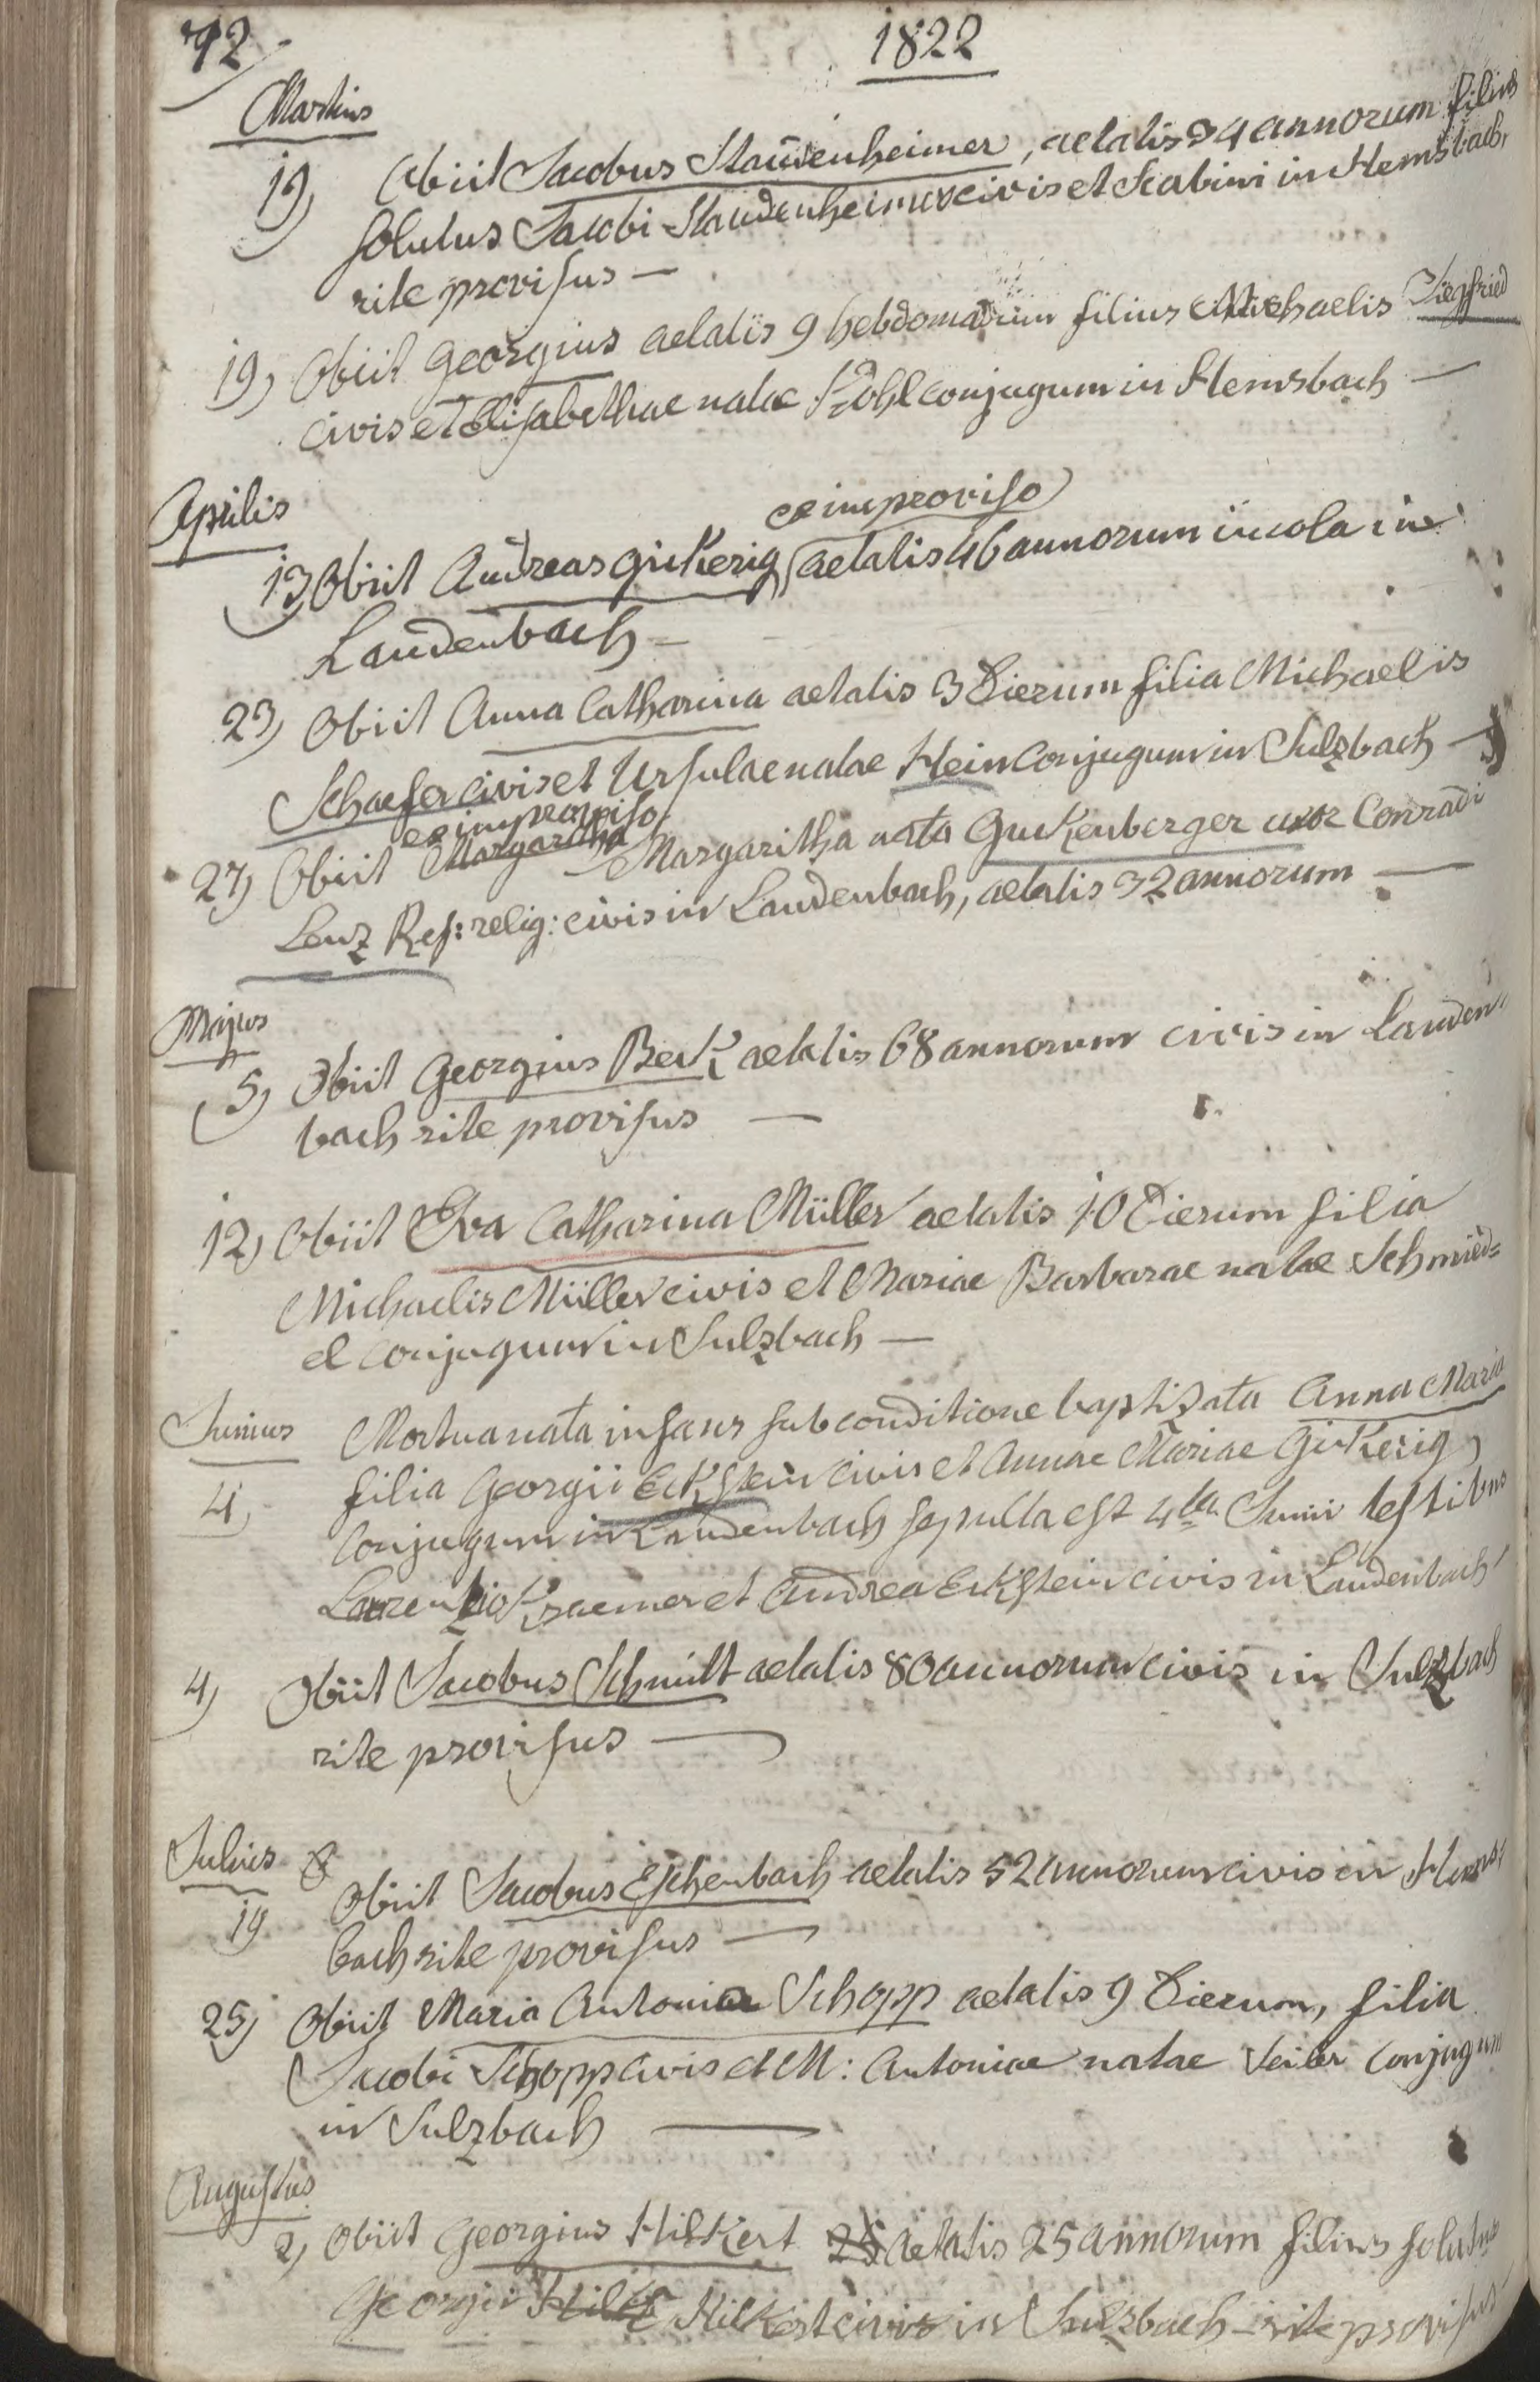 92
1822
Martius
19, Obiit Jacobus Staudenheimer, aetatis 34 annorum filius
solutus Jacobi Staudenheimer civis et Scabini in Hemsbach,
rite provisus —
19, Obiit Georgius aetatis 9 hebdomadum filius Michaelis Siegfried
civis et Elisabethae natae Kohl conjugum in Hemsbach —
Aprilis
ex improviso
13 Obiit Andreas Gickerig aetatis 46 annorum incola in
Laudenbach —
23, Obiit Anna Catharina aetatis 3 dierum filia Michaelis
Schaefer civis et Ursulae natae Hein conjugum in Sulzbach —
ex improviso
27, Obiit Margaretha Margaritha nata Guckenberger uxor Conradi
Lenz Ref: relig: civis in Laudenbach, aetatis 32 annorum —
Majus
5, Obiit Georgius Beck aetatis 68 annorum civis in Lauden-
bach rite provisus —
12, Obiit Eva Catharina Müller aetatis 10 dierum filia
Michaelis Müller civis et Mariae Barbarae natae Schmied=
el conjugum in Sulzbach —
Junius Mortua nata infans sub conditione baptizata Anna Maria
4, filia Georgii Eckstein civis et Annae Mariae Gickerig,
conjugum in Laudenbach sepulta est 4ta Junii testibus
Laurentio Kraemer et Andrea Eckstein civis in Laudenbach
4, Obiit Jacobus Schmitt aetatis 80 annorum civis in Sulzbach
rite provisus —
Julius
19 Obiit Jacobus Eschenbach aetatis 52 annorum civis in Hems-
bach rite provisus —
25, Obiit Maria Antonia Schopp aetatis 9 dierum, filia
Jacobi Schopp civis et M: Antoniae natae Seiler conjugum
in Sulzbach —
Augustus
2, Obiit Georgius Hilkert 25 aetatis 25 annorum filius solutus
Georgii Hilk Hilkert civis in Sulzbach rite provisus